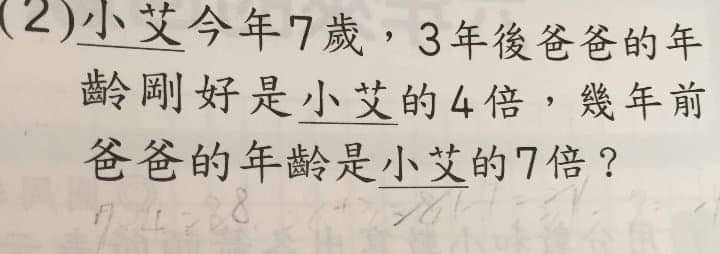 (2)小艾今年7歲，3年後爸爸的年
齡剛好是小艾的4倍，幾年前
爸爸的年齡是小艾的7倍？